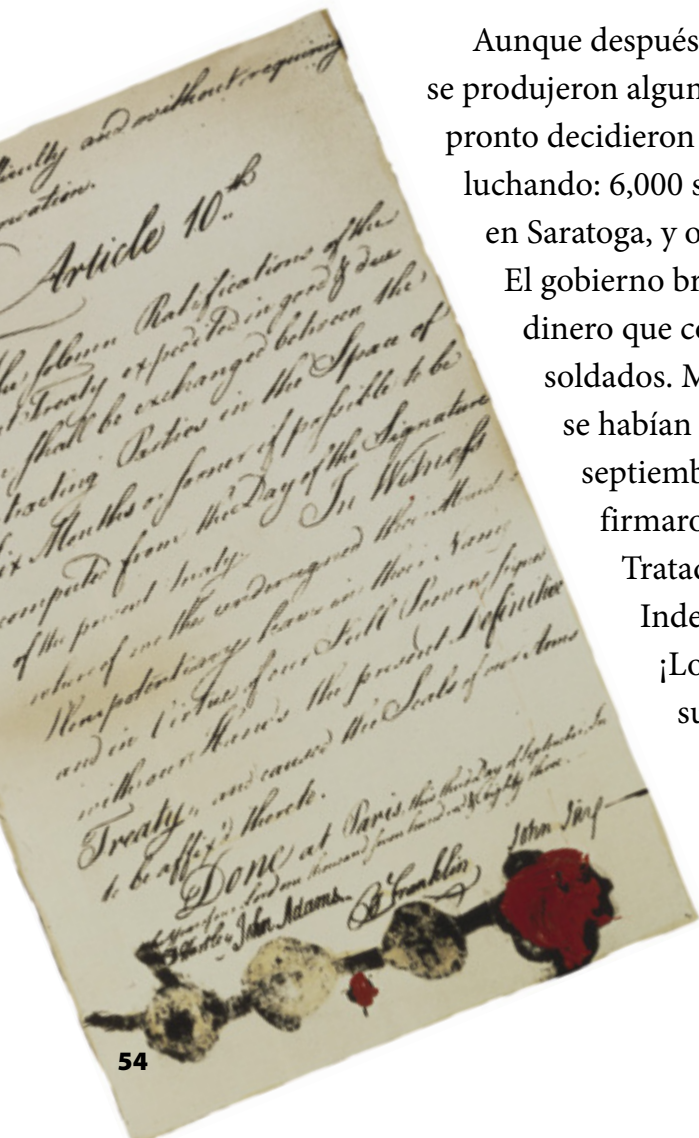 Aunque después
se produjeron algun
pronto decidieron
luchando: 6,000 s
en Saratoga, y o
El gobierno br
dinero que co
soldados. M
se habían
septiemb
firmaro
Tratad
Inde
¡Lo
su
and without requiring
Article 10th
the solemn Ratifications of the
Treaty expedited in good & due
shall be exchanged between the
tracting Parties in the Space of
Six Months or sooner if possible to be
computed from the Day of the Signature
of the present Treaty. In Witness
whereof we the undersigned their Minis-
Plenipotentiary have in their Name
and in Virtue of our Full Powers signed
with our Hands the present Definitive
Treaty, and caused the Seals of our Arms
to be affix'd thereto.
Done at Paris, this third Day of September, In
the Year of our Lord one thousand seven hundred & Eighty three.
D Hartley John Adams B Franklin John Jay
54